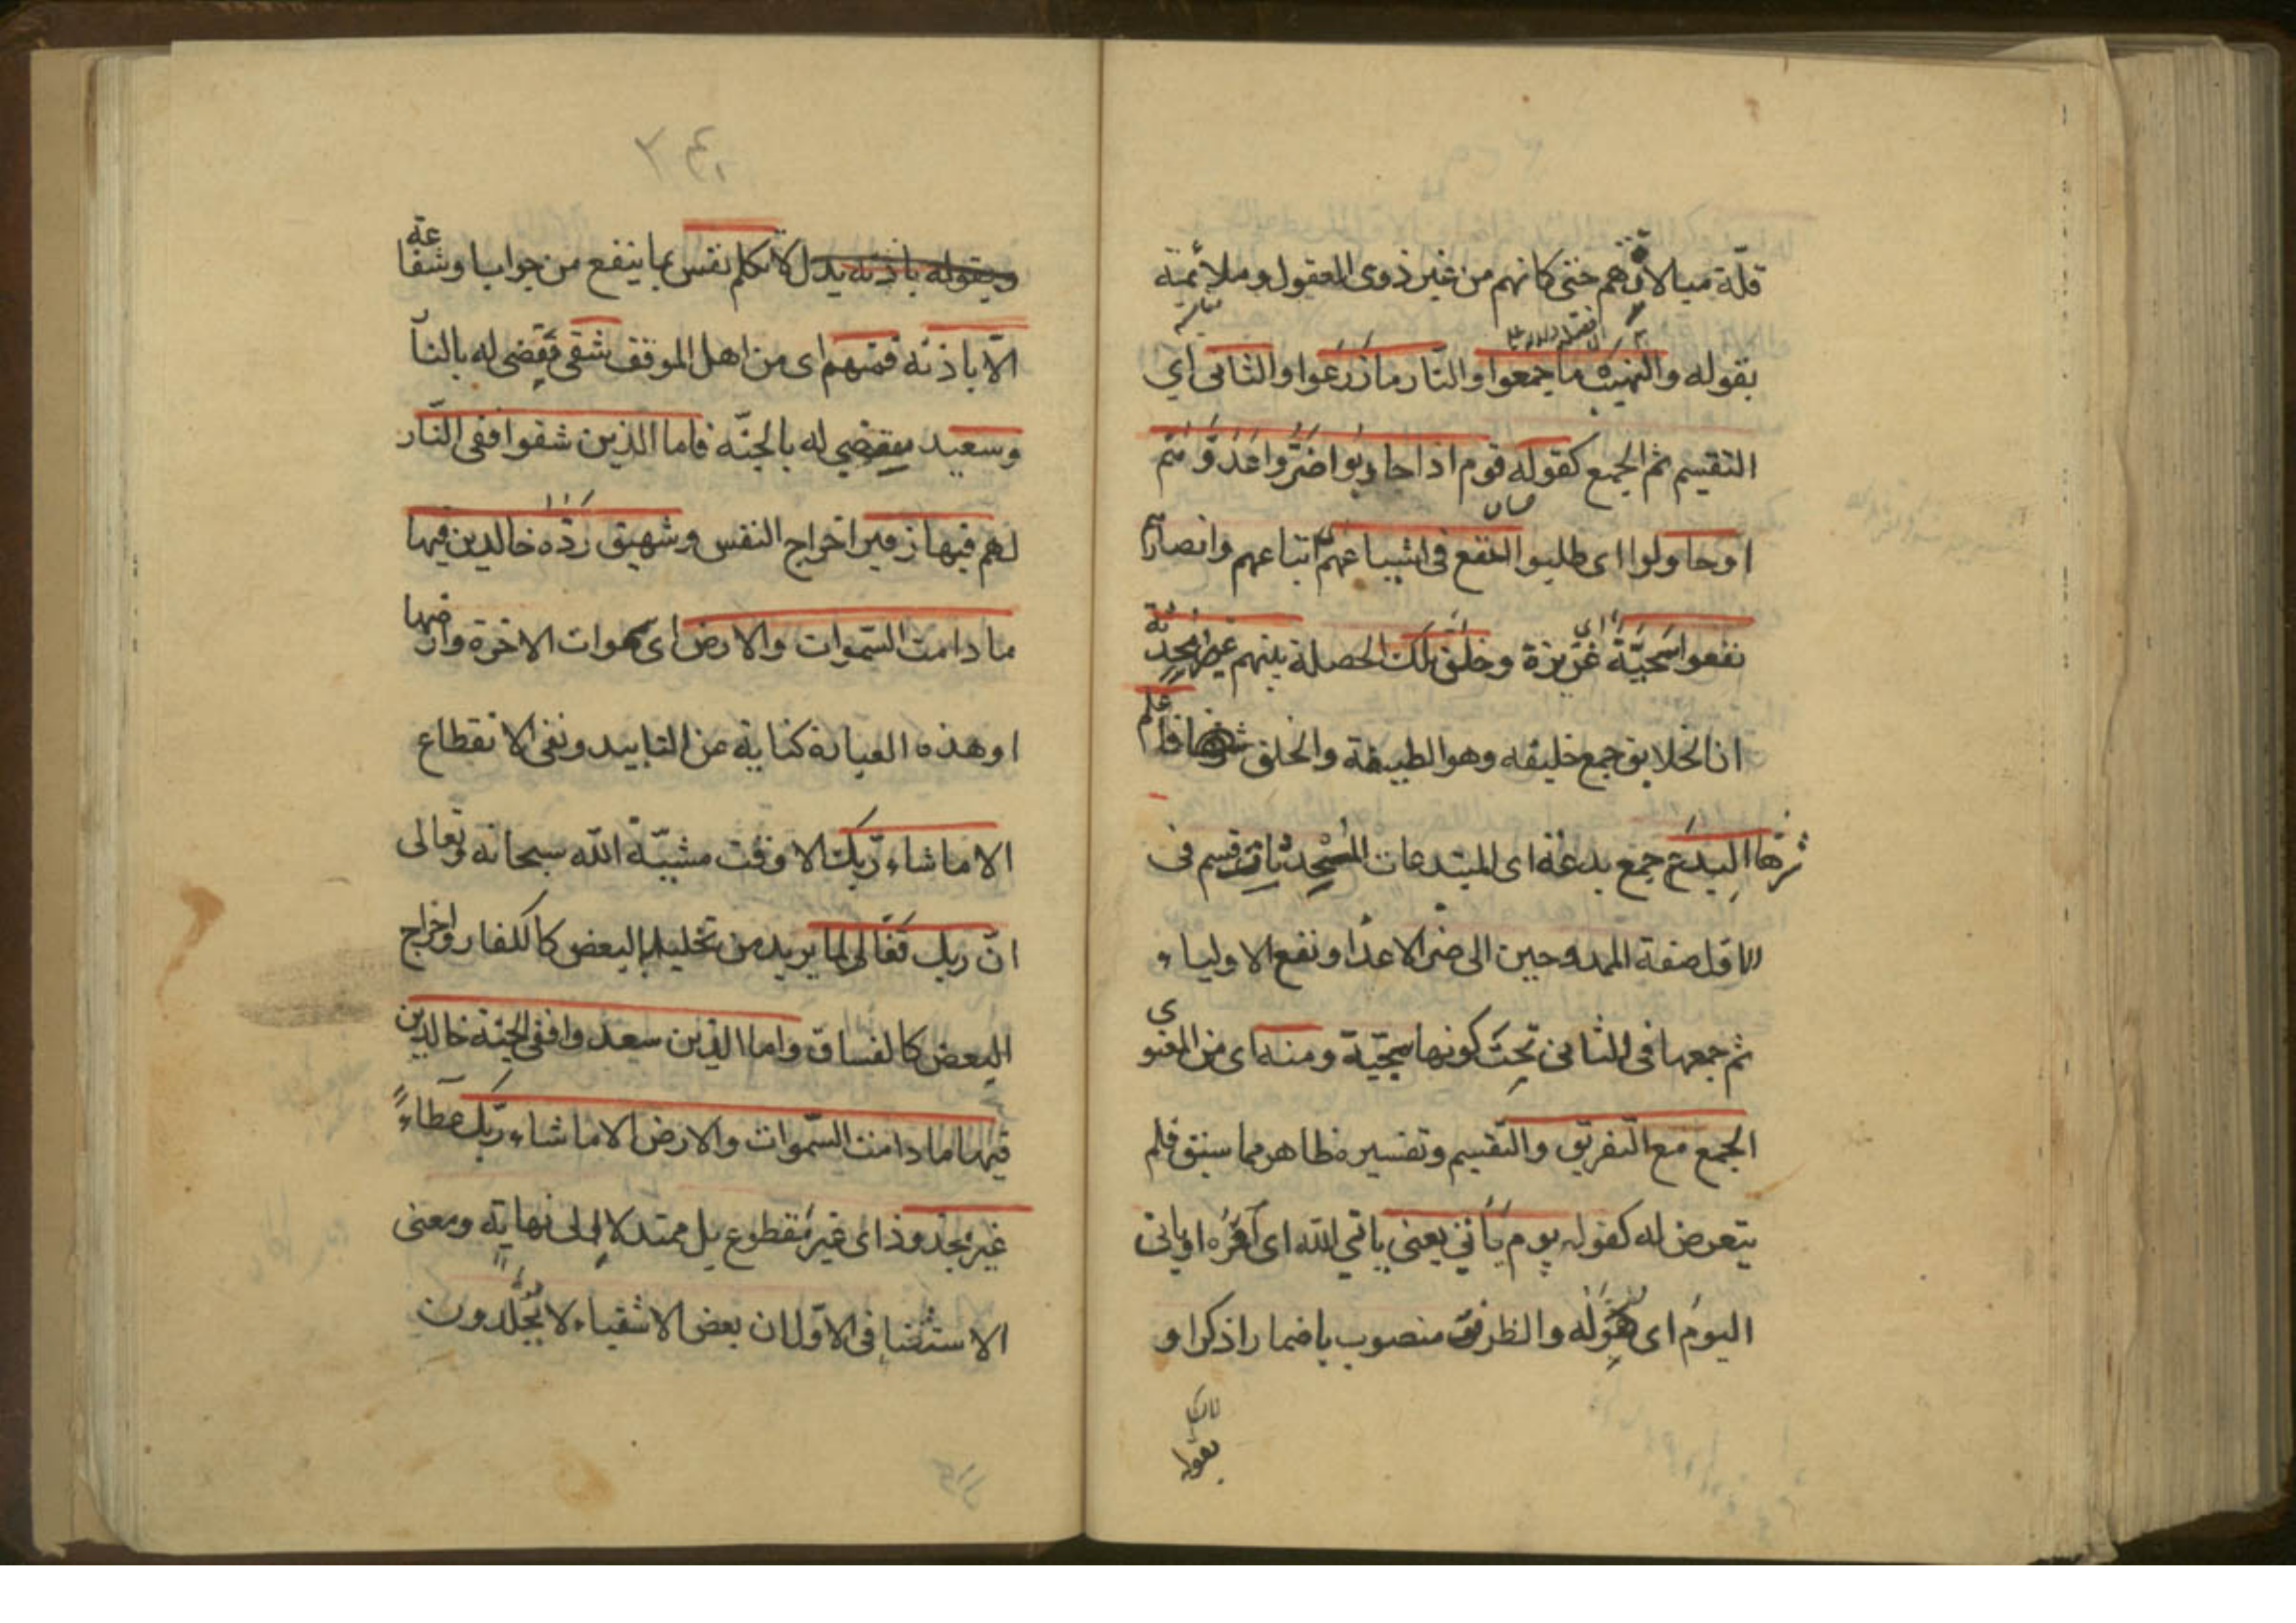 قلّة مبالاتهم حتى كانهم من غير ذوى العقول وملائمة
بقوله والنهب ما جمعوا والنار ما زرعوا والثانى اي
التقسيم ثم الجمع كقوله قوم اذا حاربوا ضرّوا عدوّهم
او حاولوا اى طلبوا النفع فى اشياعهم اتباعهم وانصارهم
نفعوا سجيّة غريزة وخلق تلك الخصلة بينهم غير محدثة
ان الخلايق جمع خليقه وهو الطبيعة والخلق فاعلم
شرّها البدع جمع بدعة اى المبتدعات المستحدثات قسم فى
الاول صفة الممدوحين الى ضر الاعدا ونفع الاولياء
ثم جمعها فى الثانى تحت كونها سجيّة ومنه اى من المعنوى
الجمع مع التفريق والتقسيم وتفسيره ظاهر مما سبق فلم
يتعرض له كقوله يوم يأتي يعنى ياتي الله اى امره او ياتى
اليوم اى هوله والظرف منصوب باضمار اذكر او
بقوله
٣٤٠
بقوله باذنه يدل لا تكلم نفس بما ينفع من جواب او شفاعة
الّا باذنه فمنهم اى من اهل الموقف شقى يقضى له بالنا
وسعيد يقضي له بالجنّة فاما الذين شقوا ففى النّار
لهم فيها زفير اخراج النفس وشهيق ردّه خالدين فيها
ما دامت السّموات والارض اى سموات الاخرة وارضها
او هذه العبارة كناية عن التابيد ونفى الانقطاع
الا ما شاء ربّك الا وقت مشيّة الله سبحانه وتعالى
انّ ربك فعّال لما يريد من تخليد البعض كالكفار واخراج
البعض كالفساق واما الذين سعدوا ففى الجنة خالدين
فيها ما دامت السّموات والارض الا ما شاء ربّك عطاءً
غير مجذوذ اى غير مقطوع بل ممتد لا الى نهاية ومعنى
الاستثنا فى الاوّل ان بعض الاشقياء لا يخلّدون